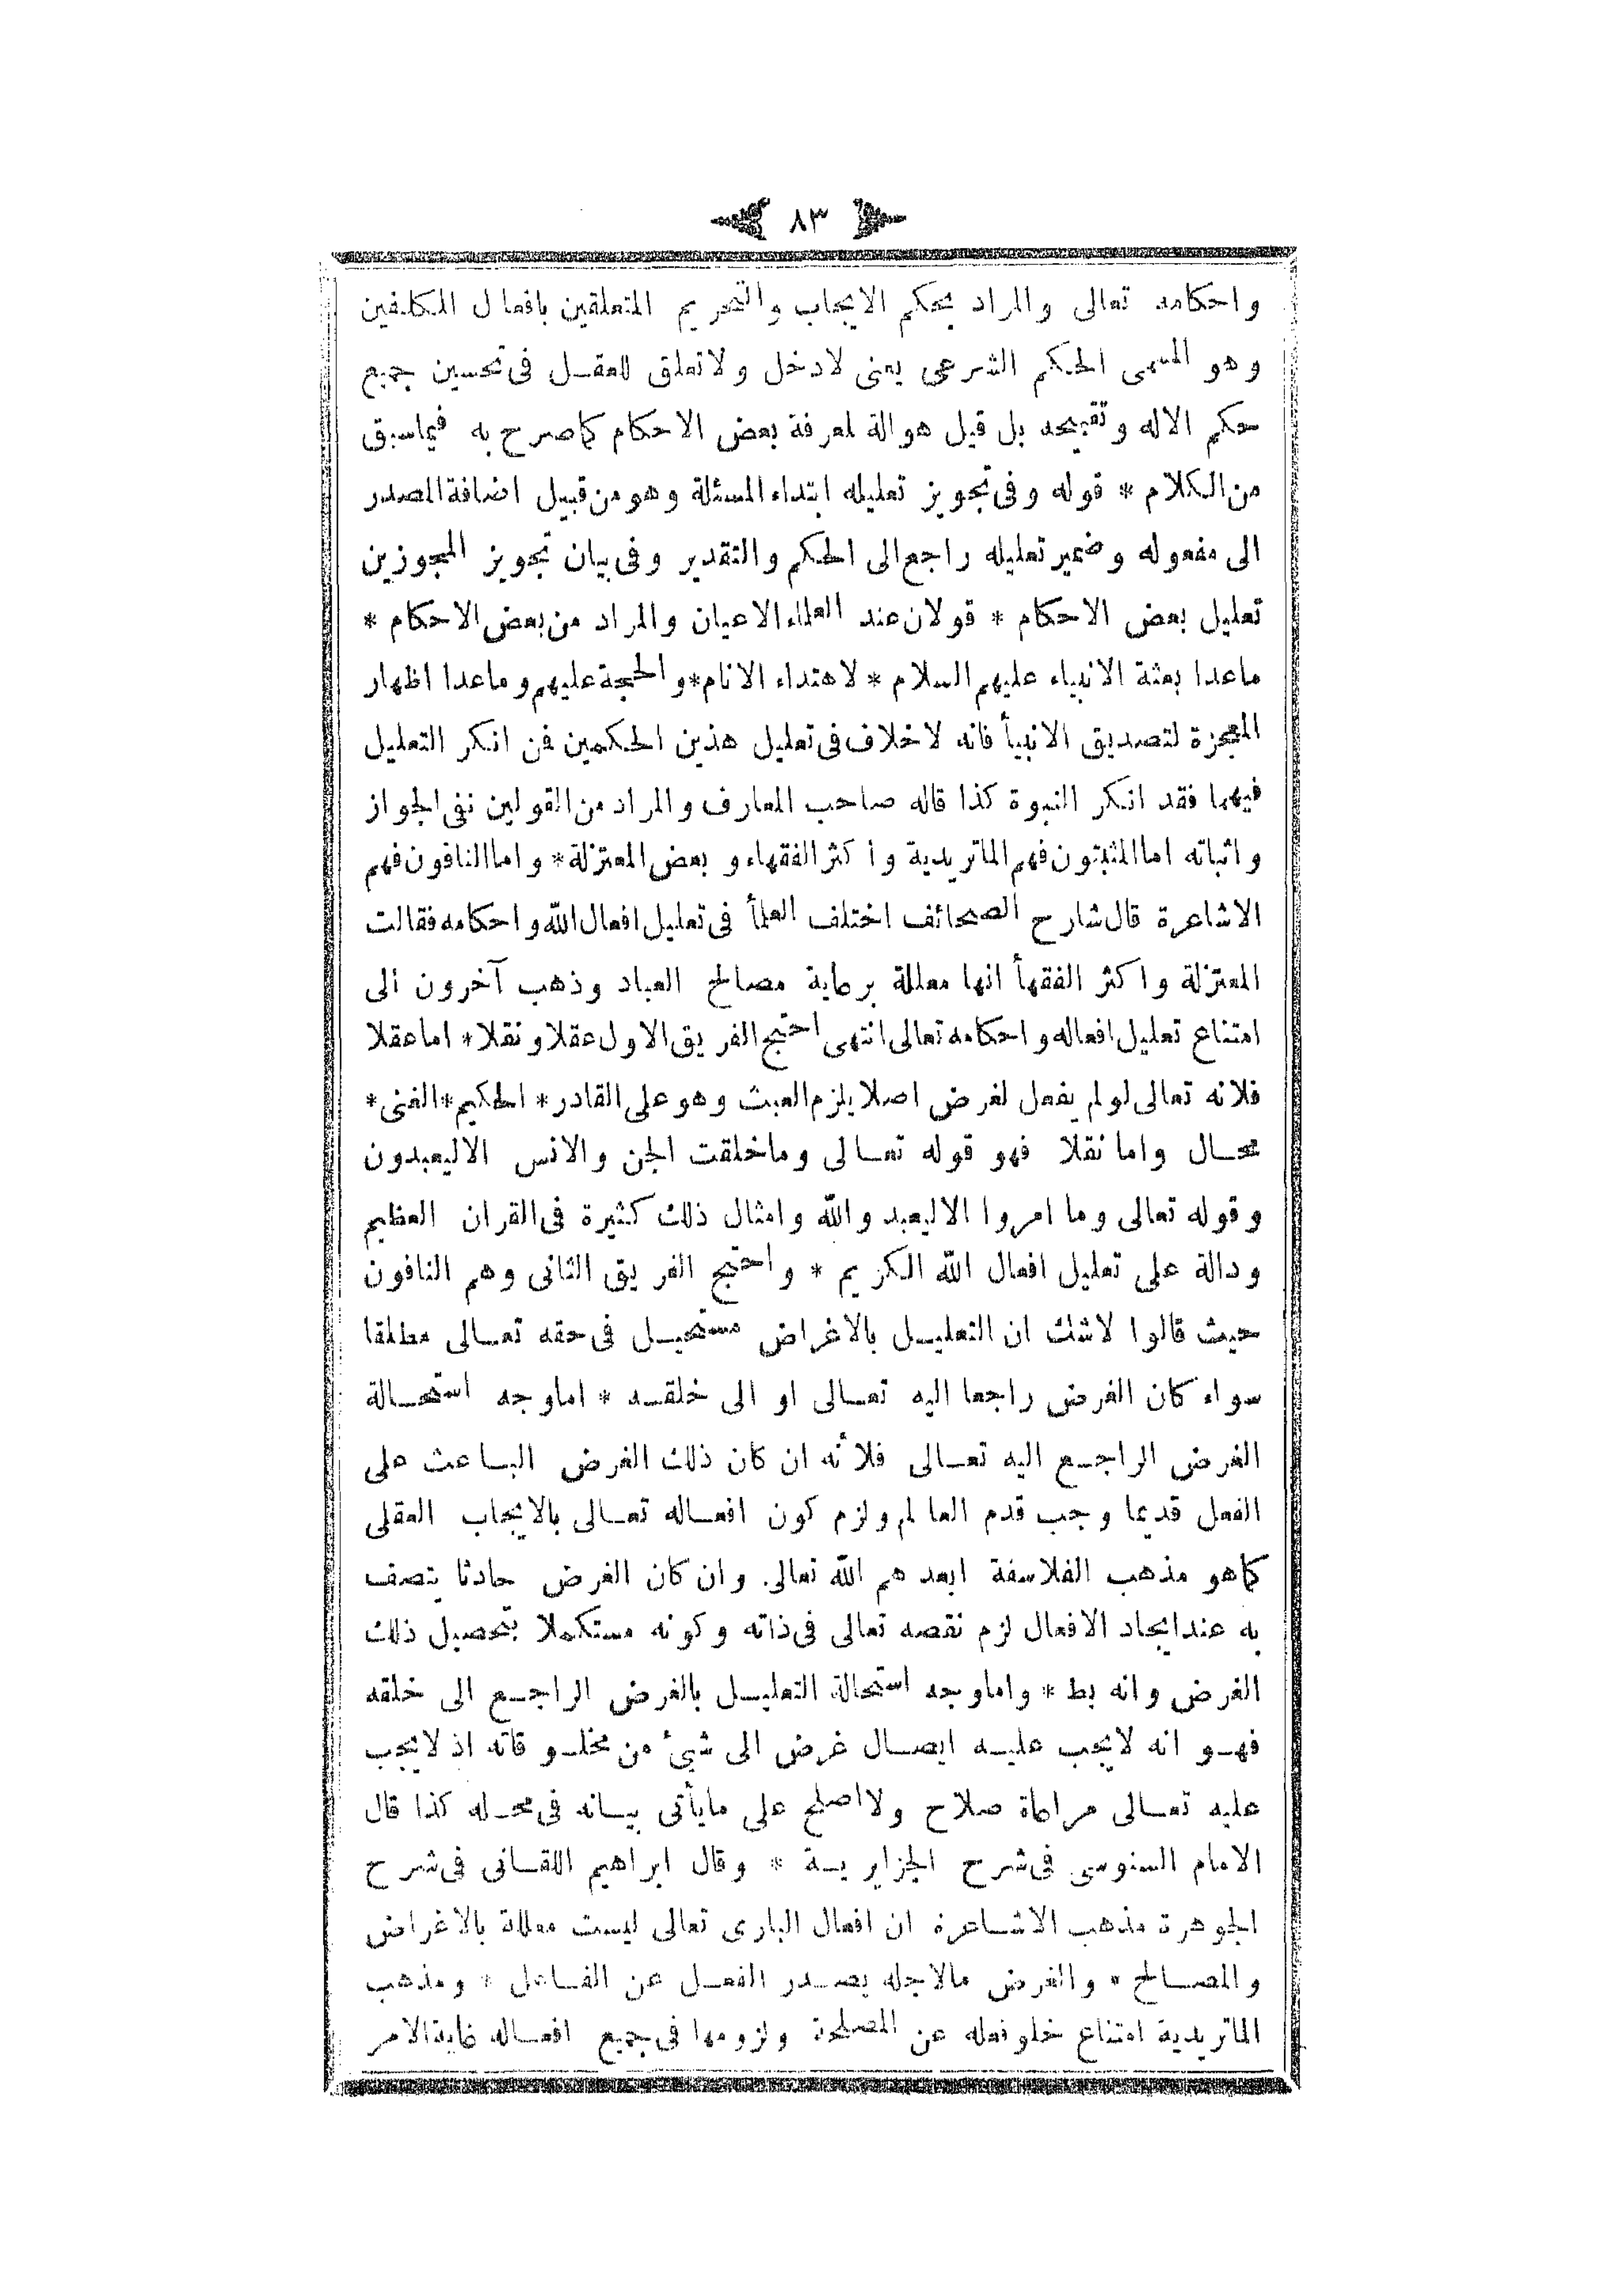 ٨٣
واحكامه تعالى والمراد بحكم الايجاب والتحريم المتعلقين بافعال المكلفين
وهو المسمى الحكم الشرعى يعنى لادخل ولاتعلق للعقل فى تحسين جميع
حكم الاله وتقبيحه بل قيل هوالة لمعرفة بعض الاحكام كماصرح به فيماسبق
من الكلام * قوله وفى تجويز تعليله ابتداء المسئلة وهو من قبيل اضافة المصدر
الى مفعوله وضمير تعليله راجع الى الحكم والتقدير وفى بيان تجويز المجوزين
تعليل بعض الاحكام * قولان عند العلماء الاعيان والمراد من بعض الاحكام *
ماعدا بعثة الانبياء عليهم السلام * لاهتداء الانام * والحجة عليهم وماعدا اظهار
المعجزة لتصديق الانبيأ فانه لاخلاف فى تعليل هذين الحكمين فمن انكر التعليل
فيهما فقد انكر النبوة كذا قاله صاحب المعارف والمراد من القولين نفى الجواز
واثباته اما المثبتون فهم الماتريدية واكثر الفقهاء وبعض المعتزلة * واما النافون فهم
الاشاعرة قال شارح الصحائف اختلف العلمأ فى تعليل افعال الله واحكامه فقالت
المعتزلة واكثر الفقهأ انها معللة برعاية مصالح العباد وذهب آخرون الى
امتناع تعليل افعاله واحكامه تعالى انتهى احتج الفريق الاول عقلا ونقلا * اما عقلا
فلانه تعالى لولم يفعل لغرض اصلا يلزم العبث وهو على القادر * الحكيم * الغنى *
محال واما نقلا فهو قوله تعالى وماخلقت الجن والانس الاليعبدون
وقوله تعالى وما امروا الاليعبدوالله وامثال ذلك كثيرة فى القران العظيم
ودالة على تعليل افعال الله الكريم * واحتج الفريق الثانى وهم النافون
حيث قالوا لاشك ان التعليل بالاغراض مستحيل فى حقه تعالى مطلقا
سواء كان الغرض راجعا اليه تعالى او الى خلقه * اماوجه استحالة
الغرض الراجع اليه تعالى فلأنه ان كان ذلك الغرض الباعث على
الفعل قديما وجب قدم العالم ولزم كون افعاله تعالى بالايجاب العقلى
كماهو مذهب الفلاسفة ابعدهم الله تعالى. وان كان الغرض حادثا يتصف
به عند ايجاد الافعال لزم نقصه تعالى فى ذاته وكونه مستكملا بتحصيل ذلك
الغرض وانه بط * واماوجه استحالة التعليل بالغرض الراجع الى خلقه
فهو انه لايجب عليه ايصال غرض الى شيئ من مخلوقاته اذ لايجب
عليه تعالى مراعاة صلاح ولااصلح على مايأتى بيانه فى محله كذا قال
الامام السنوسى فى شرح الجزايرية * وقال ابراهيم اللقانى فى شرح
الجوهرة مذهب الاشاعرة ان افعال البارى تعالى ليست معللة بالاغراض
والمصالح * والغرض مالاجله يصدر الفعل عن الفاعل * ومذهب
الماتريدية امتناع خلوفعله عن المصلحة ولزومها فى جميع افعاله غاية الامر